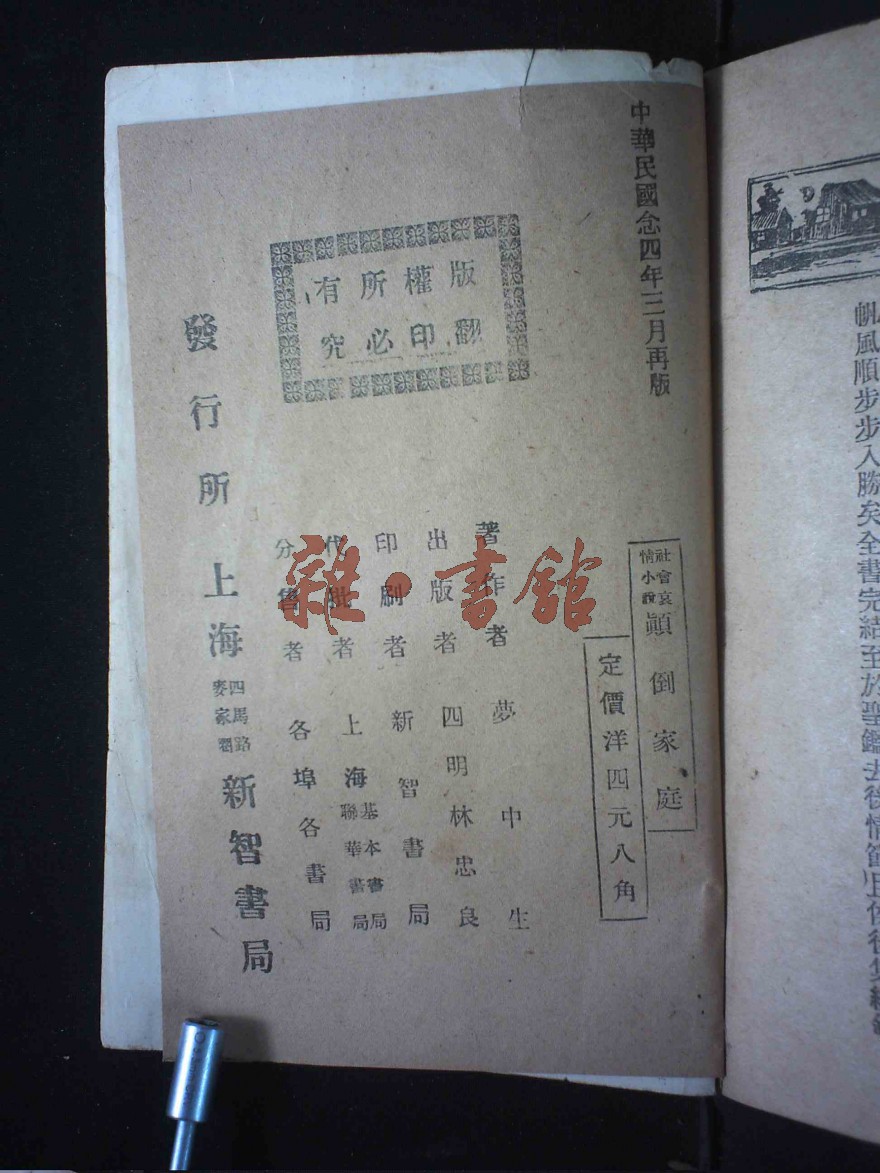 中華民國念四年三月再版
版權所有
翻印必究
社會哀
情小說
顚倒家庭
定價洋四元八角
著作者 夢中生
出版者 四明林忠良
印刷者 新智書局
代批者 上海 基本書局
聯華書局
分售者 各埠各書局
發行所 上海 四馬路
麥家圈 新智書局
雜·書館
帆風順步步入勝矣全書完結至於聖鑑去後情節